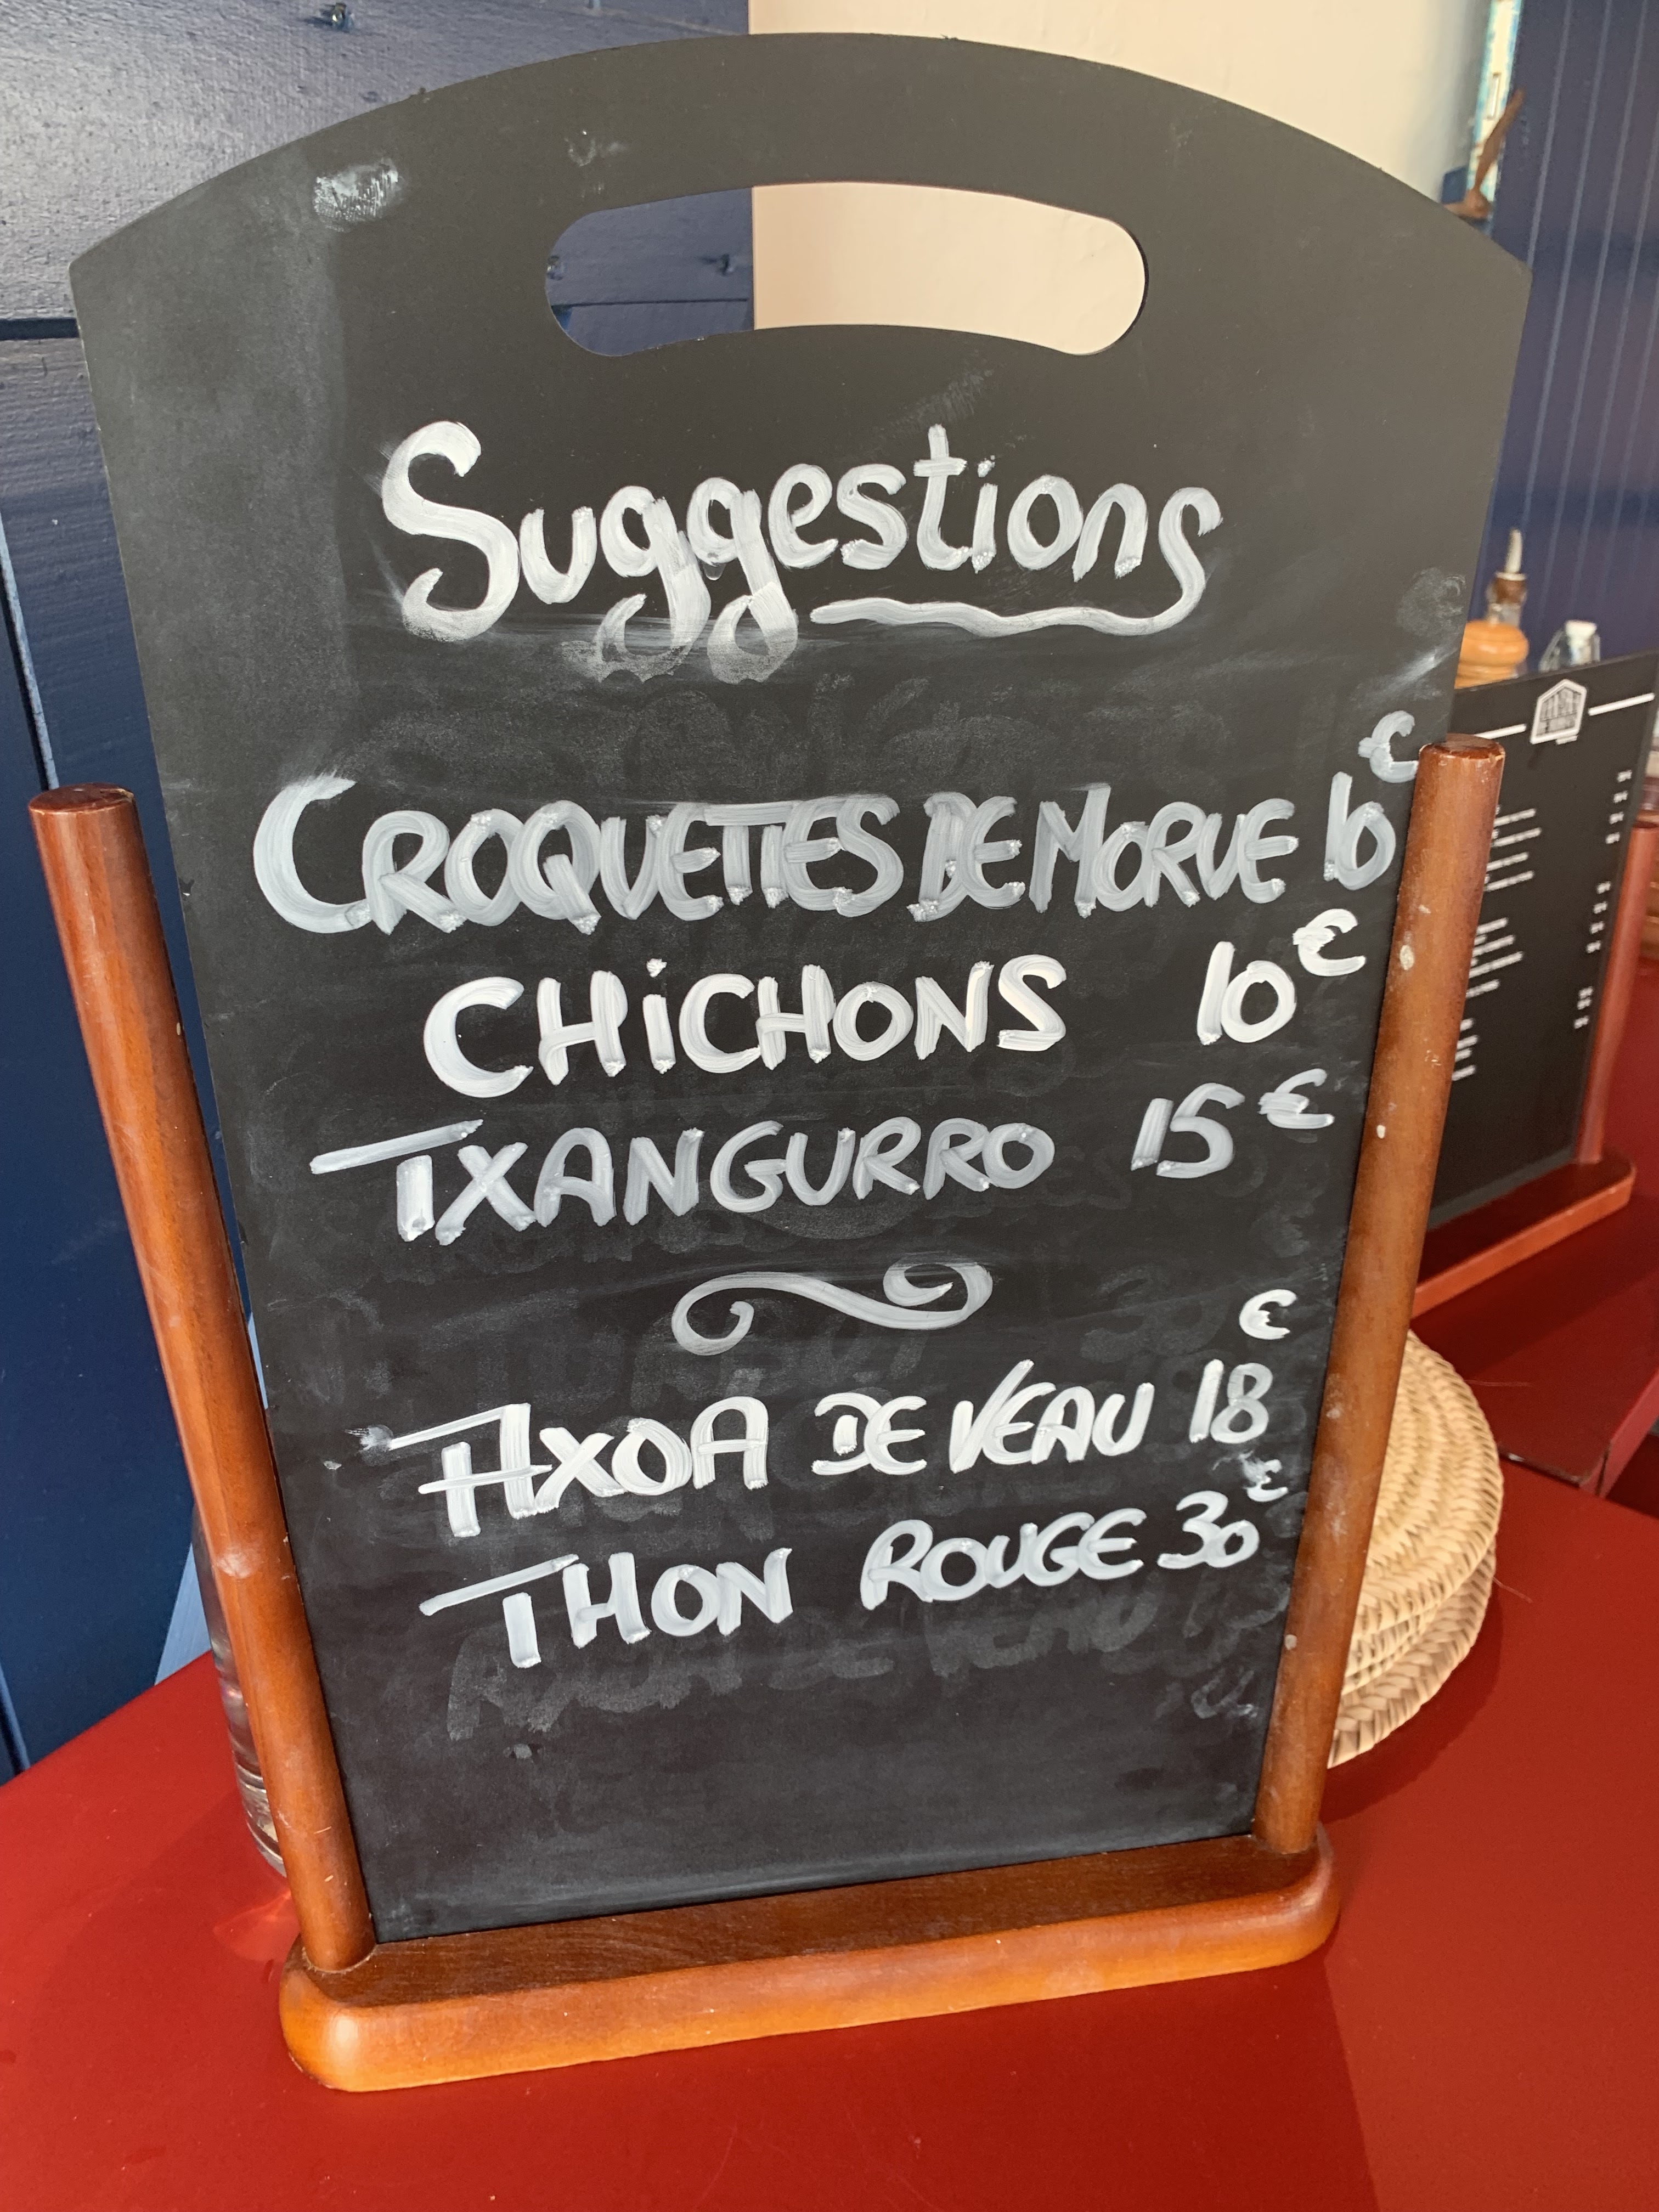 Suggestions
CROQUETTES DE MORUE 10€
CHiCHONS 10€
TXANGURRO 15€
AXOA DE VEAU 18€
THON ROUGE 30€